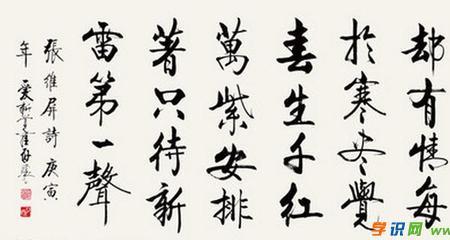 却有情每
於寒尽覺
春生千红
萬紫安排
著只待新
雷第一聲
張維屏詩庚寅
年
学识网